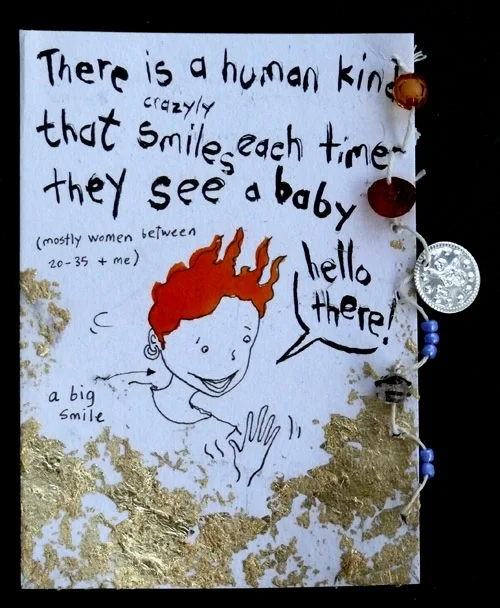 There is a human kind
crazyly
that smiles each time
they see a baby
(mostly women between
20-35 + me)
hello
there!
a big
smile